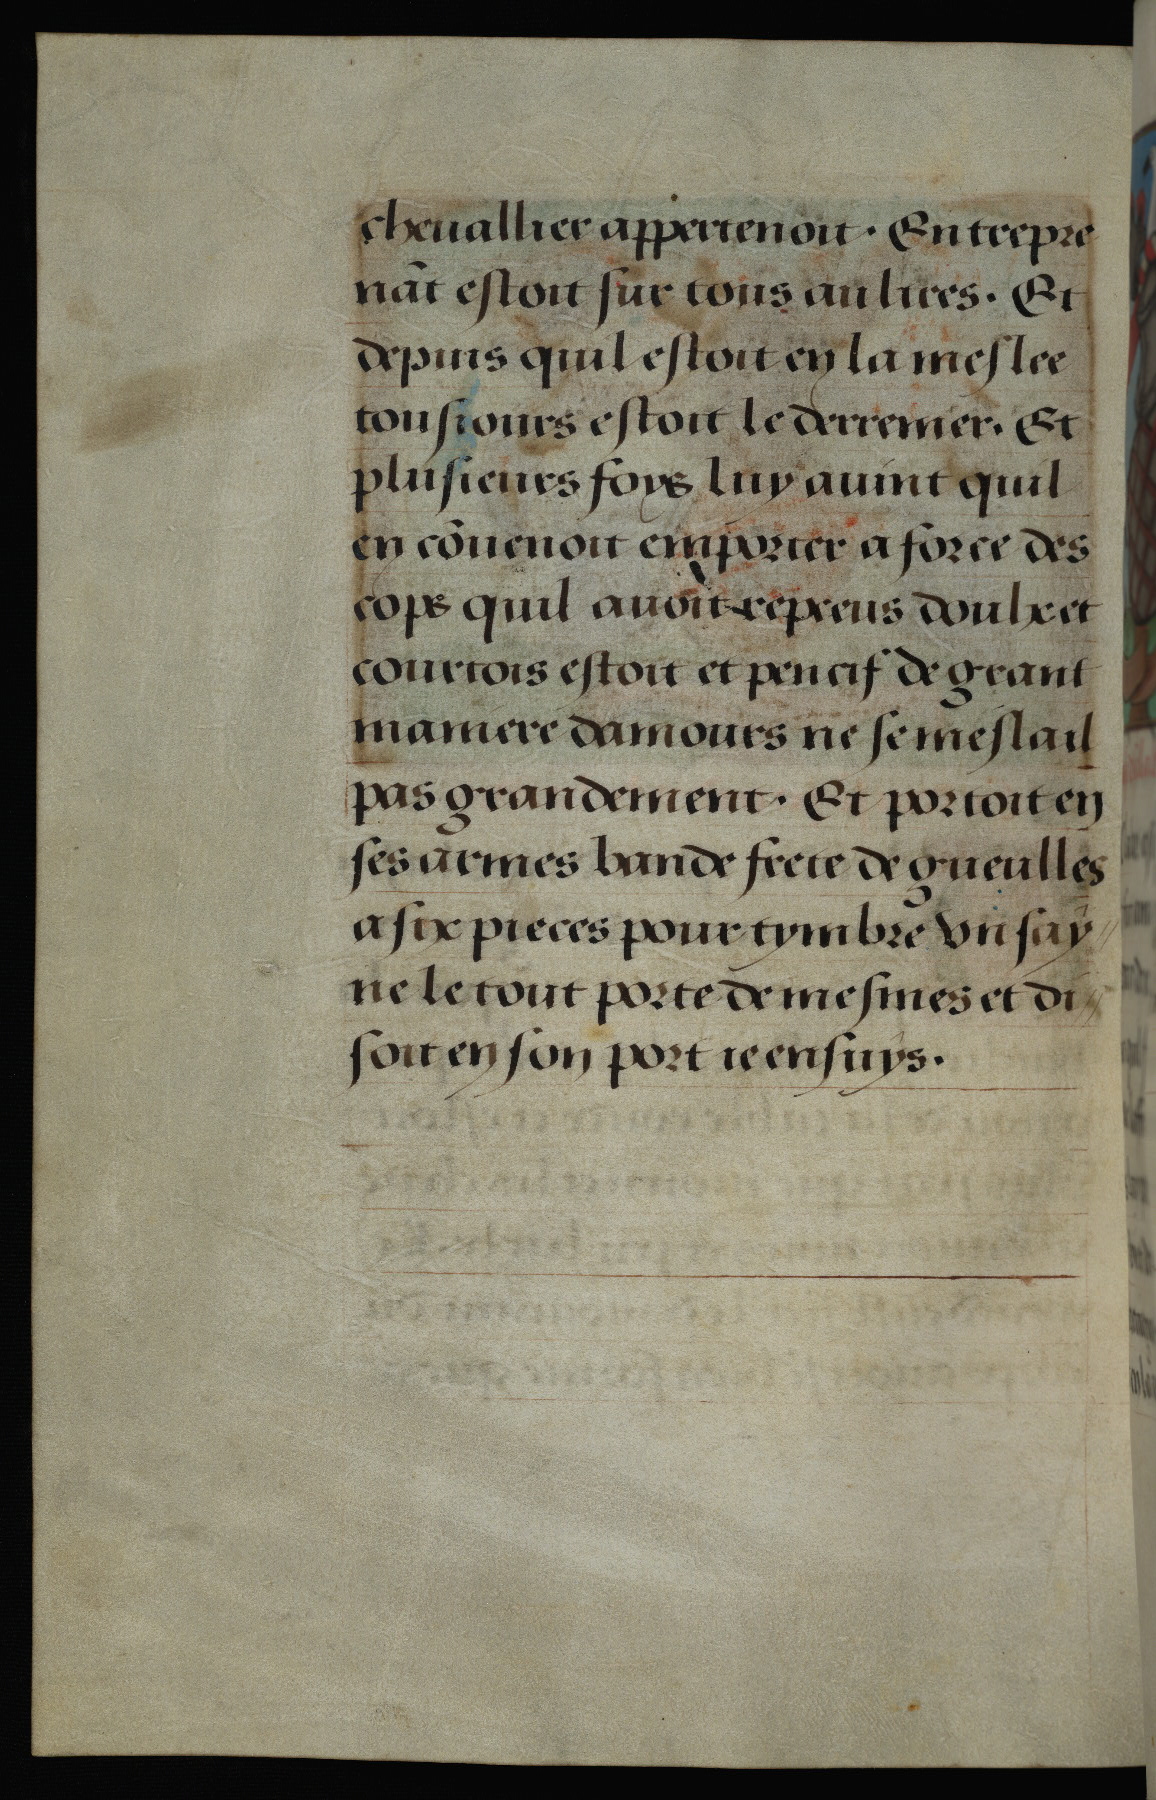 cheuallier appertenoit. Entrepre
nãt estoit sur tous aultres. Et
depuis quil estoit en la meslee
tousiours estoit le derrenier. Et
plusieurs foys luy auint quil
en cõuenoit emporter a force des
cops quil auoit repceus doulx et
courtois estoit et pencif de grant
maniere damours ne se meslail
pas grandement. Et portoit en
ses armes bande frete de gueulles
a six pieces pour tymbre vn say//
ne le tout porte de mesmes et di//
soit en son port ie ensuys.